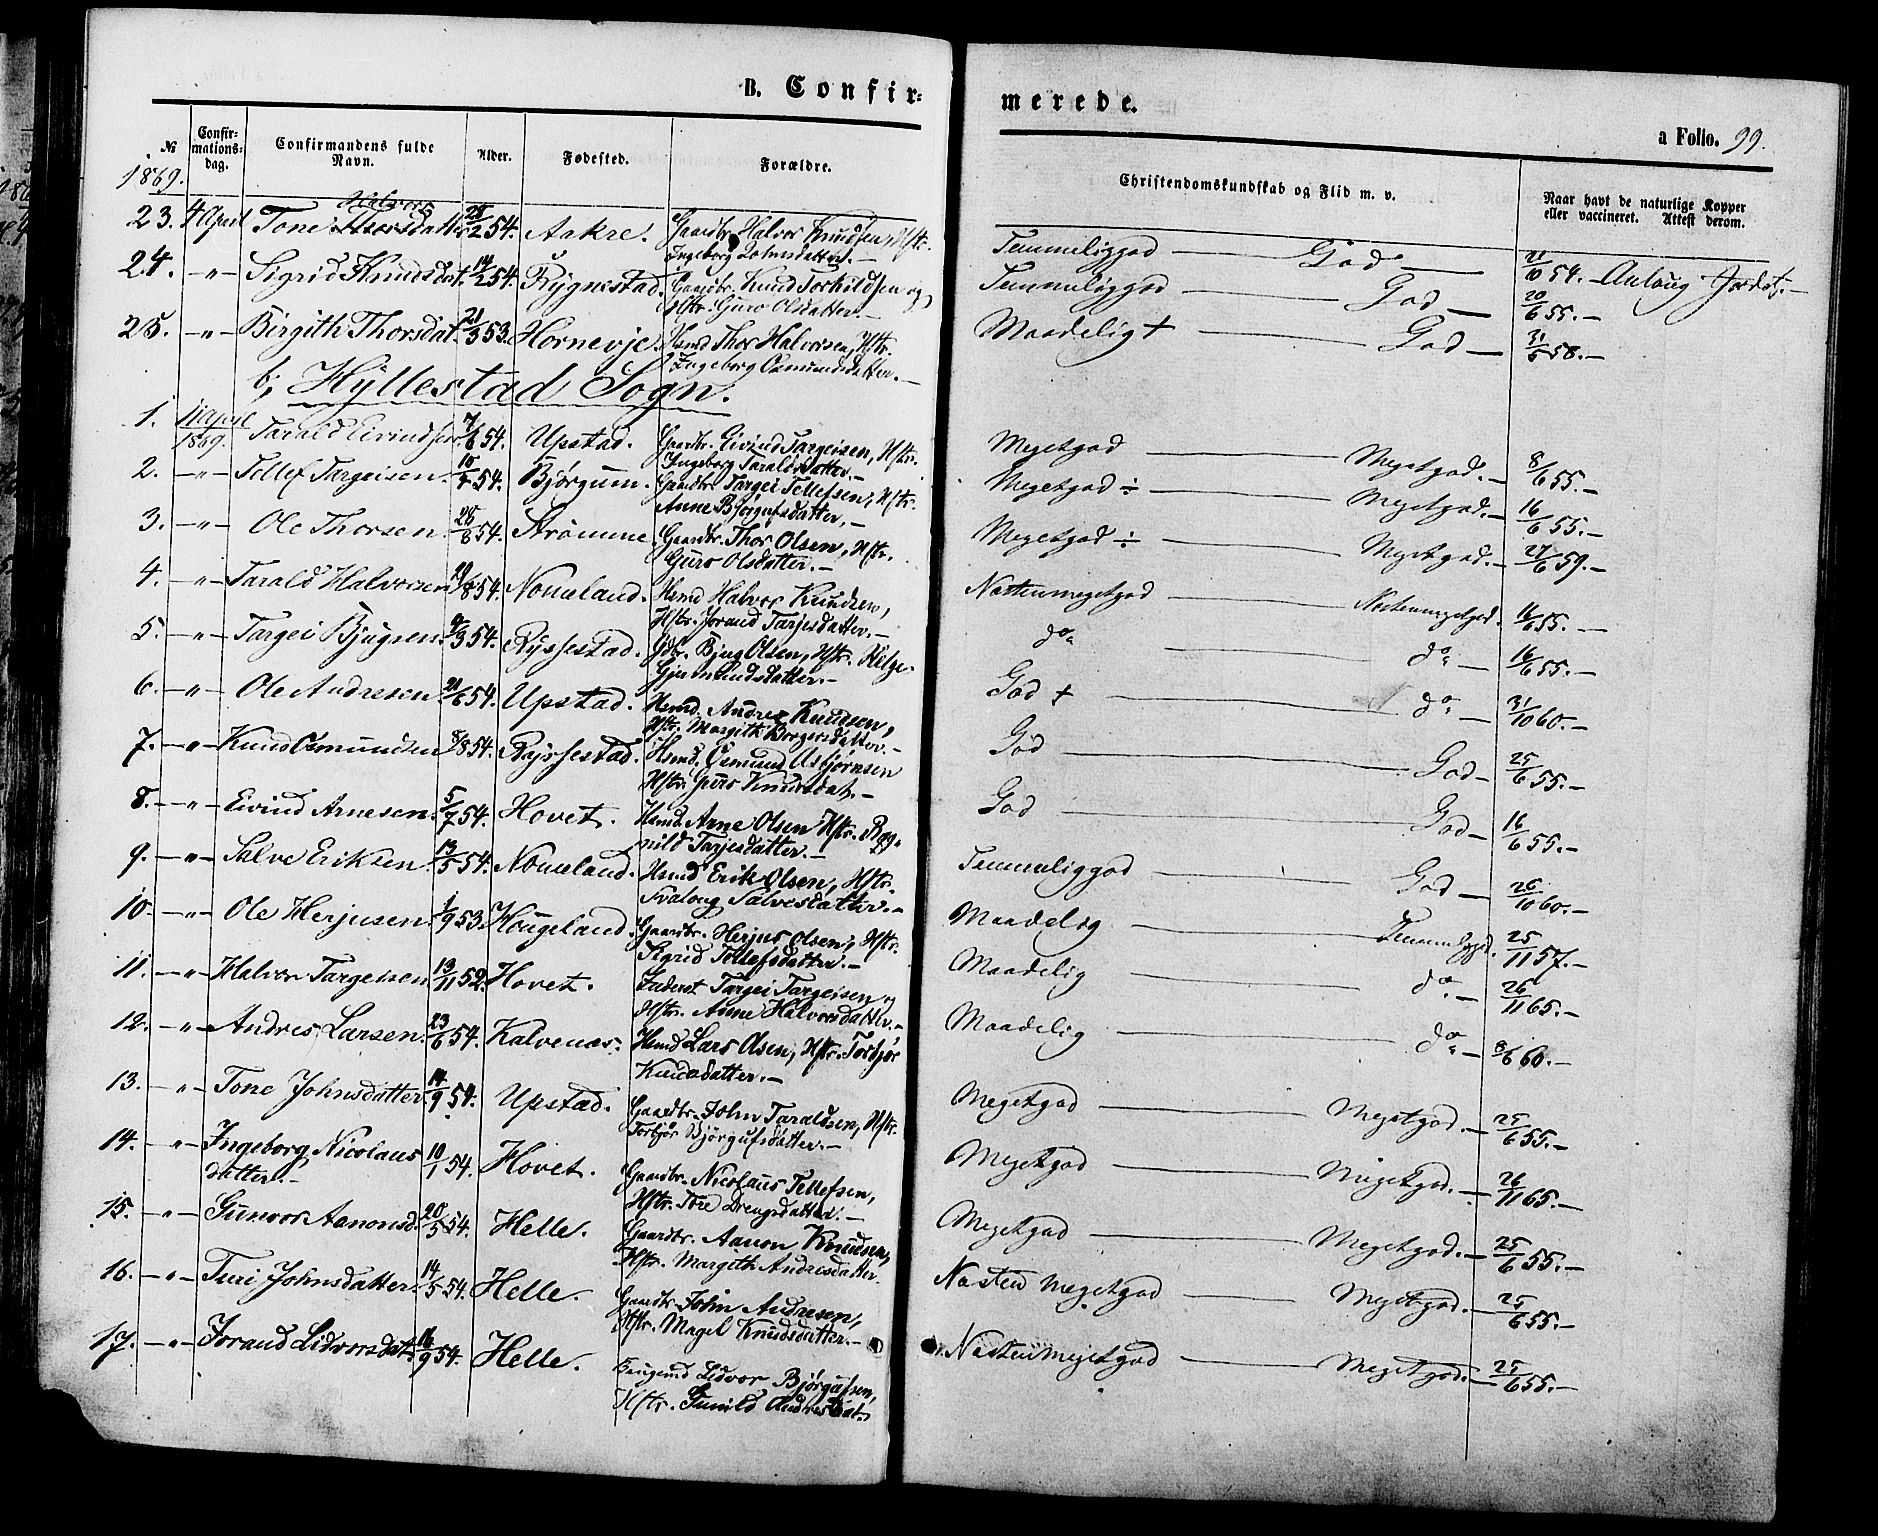 B. Confir=
merede.
a Folio. 99.
№
Confir=
mations=
dag.
Confirmandens fulde
Navn.
Alder.
Fødested.
Forældre.
Christendomskundskab og Flid m. v.
Naar havt de naturlige Kopper
eller vaccineret. Attest derom.
1869.
Halvors
23. 4 April Tone Thorsdatter 28/2 54. Aakre. Gaardbr. Halvor Knudsen, Hstr.
Ingeborg Johnsdatter.— Temmeliggod — God — 21/10 54. — Aslaug Jordst.—
24. —"— Sigrid Knudsdat. 14/2 54. Rygnestad. Gaardbr. Knud Torkildsen og
Hstr. Guro Olsdatter.— Temmeliggod — God — 20/6 55.—
25. —"— Birgith Thorsdat. 21/3 53. Hornevje. Hsmd Thor Halvorsen, Hstr.
Ingeborg Osmundsdatter.— Maadelig + — God — 31/5 58.—
b; Hyllestad Sogn.
1. 11 April
1869. Tarald Eivindsen. 7/6 54. Upstad. Gaardbr. Eivind Targeisen, Hstr.
Ingeborg Taraldsdatter.— Megetgod — Megetgod.— 8/6 55.—
2. —"— Tellef Targeisen. 10/4 54. Bjørgum. Gaardbr. Targei Tellefsen, Hstr.
Anne Bjørgufsdatter.— Megetgod ÷ — Megetgod.— 16/6 55.—
3. —"— Ole Thorsen. 28/8 54. Strømme. Gaardbr. Thor Olsen, Hstr.
Guro Olsdatter.— Megetgod ÷ — Megetgod.— 27/6 59.—
4. —"— Tarald Halvorsen 29/8 54. Nomeland. Hsmd Halvor Knudsen,
Hstr. Jorand Tarjesdatter.— Næstenmegetgod — Næstenmegetgod. 16/6 55.—
5. —"— Targei Bjugsen. 9/3 54. Ryssestad. Gdbr. Bjug Olsen, Hstr. Helge
Gjermundsdatter.— do — do — 16/6 55.—
6. —"— Ole Andresen 21/6 54. Upstad. Hsmd. Andres Knudsen,
Hstr. Margith Borgersdatter.— God + — do — 31/10 60.—
7. —"— Knud Osmundsen 8/8 54. Ryssestad. Hsmd. Osmund Asbjørnsen
Hstr. Guro Knudsdat.— God — God — 25/6 55.—
8. —"— Eivind Arnesen. 5/7 54. Hovet. Hsmd. Arne Olsen Hstr. Ragn
nild Tarjesdatter.— God — God — 16/6 55.—
9. —"— Salve Eriksen. 13/5 54. Nomeland. Hsmd Erik Olsen, Hstr.
Svaloug Salvesdatter.— Temmeliggod — God — 26/10 60.—
10. —"— Ole Herjusen. 1/9 53. Hougeland. Gaardbr. Herjus Olsen, Hstr.
Sigrid Tellefsdatter.— Maadelig — Temmeliggod. 25/11 57.—
11. —"— Halvor Targeisen 13/11 52. Hovet. Inderst Targei Targeisen og
Hstr. Anne Halvorsdatter.— Maadelig — do — 26/11 65.—
12. —"— Andres Larsen. 23/6 54. Kalvenæs. Hsmd Lars Olsen, Hstr. Torbjør
Knudsdatter.— Maadelig — do — 8/6 60.—
13. —"— Tone Johnsdatter. 14/9 54. Upstad. Gaardbr. John Taraldsen, Hstr.
Torbjør Bjørgufsdatter.— Megetgod — Megetgod.— 25/6 55.—
14. —"— Ingeborg Nicolaus
datter.— 10/1 54. Hovet. Gaardbr. Nicolaus Tellefsen,
Hstr. Tore Drengsdatter.— Megetgod — Megetgod.— 26/11 65.—
15. —"— Gunvor Aanonsd. 20/5 54. Helle. Gaardbr. Aanon Knudsen,
Hstr. Margith Andresdatter. Megetgod — Megetgod.— 25/6 55.—
16. —"— Turi Johnsdatter. 14/5 54. Helle. Gaardbr. John Andresen,
Hstr. Magel Knudsdatter.— Næsten Megetgod — Megetgod.— 25/6 55.—
17. —"— Jorand Lidvorsdat. 16/9 54. Helle. Lidvor Bjørgufsen,
Hstr. Gunild Andresdat. Næstenmegetgod — Megetgod.— 25/6 55.—